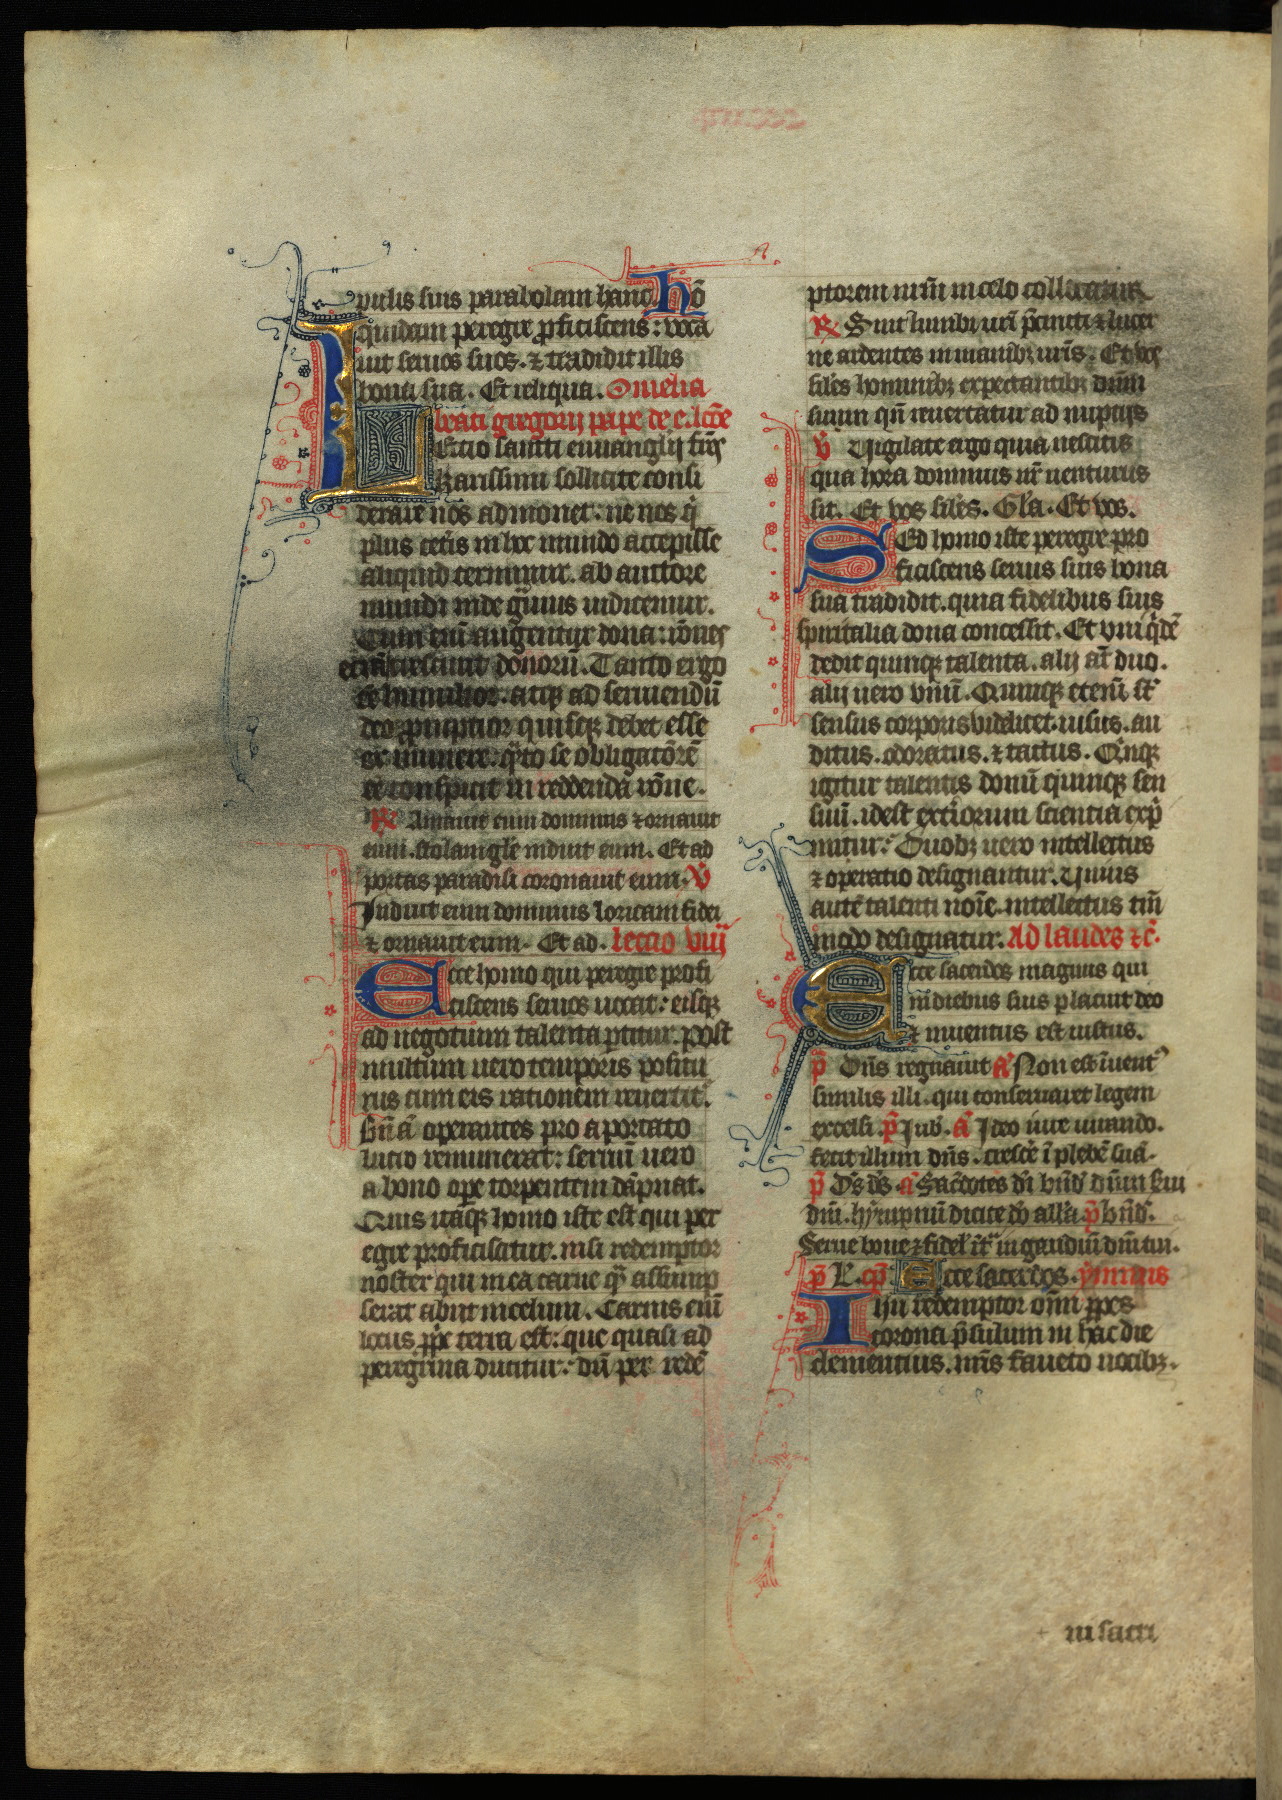 pulis suis parabolam hanc. Hō
quidam peregre ꝓficiscens: voca
uit seruos suos. ⁊ tradidit illis
bona sua. Et reliqua. Omelia
beati gregorij pape de e. lcōe
Lectio sancti euuangelij fr̄s
karissimi sollicite consi
derare nos admonet: ne nos q̄
plus ceteris in hoc mundo accepisse
aliquid cernimur. ab auctore
mundi inde grauius iudicemur.
Cum eni augentur dona: rōnes
etiā crescunt donorū. Tanto ergo
esse humilior. atqꝫ ad seruiendū
deo ꝓmptior quisqꝫ debet esse
ex munere. q̄to se obligatōrē
ee conspicit in reddenda rōne.
R̄ Amauit eum dominus ⁊ ornauit
eum. stolam glē induit eum. Et ad
portas paradisi coronauit eum. V̄
Induit eum dominus loricam fidei
⁊ ornauit eum. Et ad. Lectio viij
Ecce homo qui peregre profi
ciscens seruos uocat: eisqꝫ
ad negotium talenta ꝑtitur. Post
multum uero temporis positu
rus cum eis rationem reuertit.
Bn̄ā operantes pro aportato
lucro remunerat: seruū uero
a bono oꝑe torpentem dāpnat.
Quis itaqꝫ homo iste est qui per
egre proficiscatur. nisi redemptor
noster qui in ea carne qᷓ assump
serat abiit in celum. Carnis eni
locus ꝓpe terra est: que quasi ad
peregrina ducitur: dū per redē
ptorem nr̄m in celo collocatur.
R̄ Sint lumbi uri p̄cincti ⁊ lucer
ne ardentes in manibꝫ uris. Et vos
siles hominibꝫ expectantibꝫ dn̄m
suum qn̄ reuertatur ad nuptijs
V̄ Vigilate ergo quia nescitis
qua hora dominus ur̄ uenturus
sit. Et vos siles. Gl̄a. Et vos.
Sed homo iste peregre pro
ficiscens seruis suis bona
sua tradidit. quia fidelibus suis
spiritalia dona concessit. Et vni q̇dē
dedit quinqꝫ talenta. alij aūt duo.
alij uero vnū. Quinqꝫ etenī st̄
sensus corporis videlicet. uisus. au
ditus. odoratus. ⁊ tactus. Qinqꝫ
igitur talentis donū quinqꝫ sen
suū. idest exteriorum scientia exp̄
mitur: Duobꝫ uero intellectus
⁊ operatio designantur. Vnius
autē talenti noīe. intellectus tm̄
modo designatur. Ad laudes ⁊c̄.
Ecce sacerdos magnus qui
in diebus suis placuit deo
⁊ inuentus est iustus.
p̄ Dn̄s regnauit ā Non est īuentꝰ
similis illi. qui conseruaret legem
excelsi. p̄ Jub̄. ā Ideo iure iurando.
fecit illum dn̄s. crescē ī plebē suā.
p̄ Ds̄ ds̄. ā Sacdotes di bn̄d̄ dn̄m ẜui
dn̄i. hymnū dicite dō all̄a. p̄ bn̄d̄.
Serue bone ⁊ fidel̄ īt̄ in gaudiū dn̄i tui.
p̄ L̄. cp̄ Ecce sacerdos. ymnus
Ihu redemptor oīm ꝑpes
corona p̄sulum in hac die
clementius. nr̄is faueto uocibꝫ.
in sacri